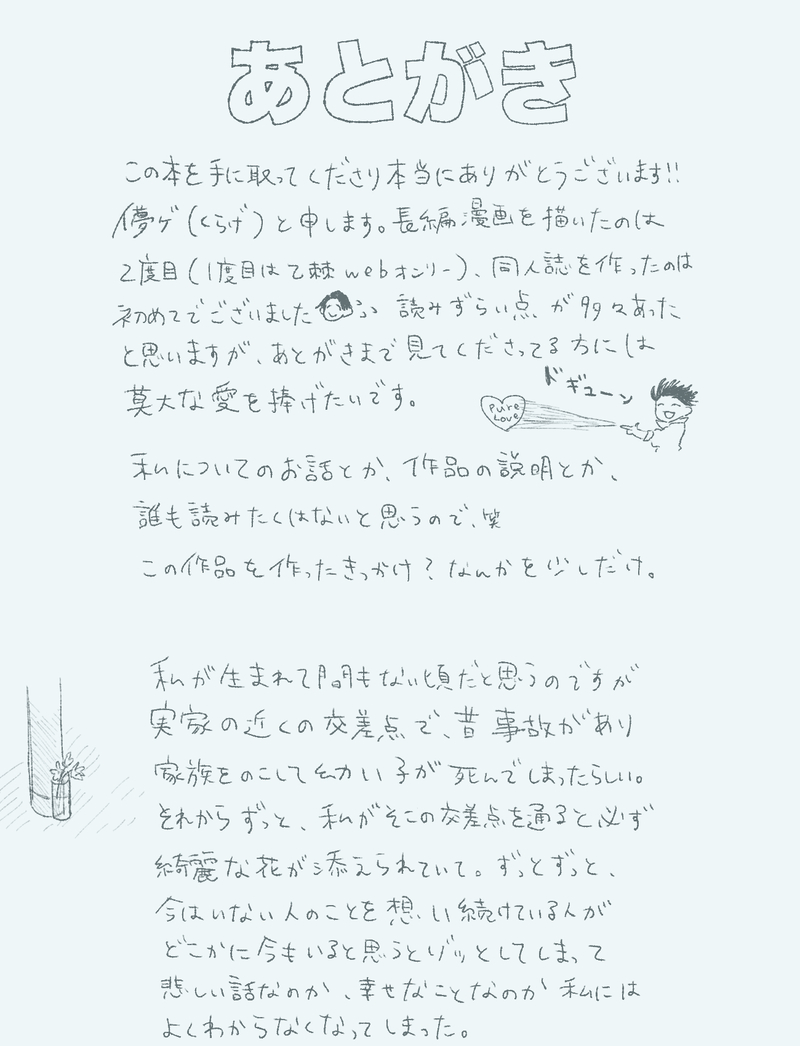 あとがき
この本を手に取ってくださり本当にありがとうございます!!
儚ゲ(くらげ)と申します。長編漫画を描いたのは
2度目(1度目は乙棘webオンリー)、同人誌を作ったのは
初めてでございました 読みずらい点が多々あった
と思いますが、あとがきまで見てくださってる方には
莫大な愛を捧げたいです。
ドギューン
Pure
Love
私についてのお話とか、作品の説明とか、
誰も読みたくはないと思うので、笑
この作品を作ったきっかけ?なんかを少しだけ。
私が生まれて間もない頃だと思うのですが
実家の近くの交差点で、昔事故があり
家族をのこして幼い子が死んでしまったらしい。
それからずっと、私がそこの交差点を通ると必ず
綺麗な花が添えられていて。ずっとずっと、
今はいない人のことを想い続けている人が
どこかに今もいると思うとゾッとしてしまって
悲しい話なのか、幸せなことなのか私には
よくわからなくなってしまった。